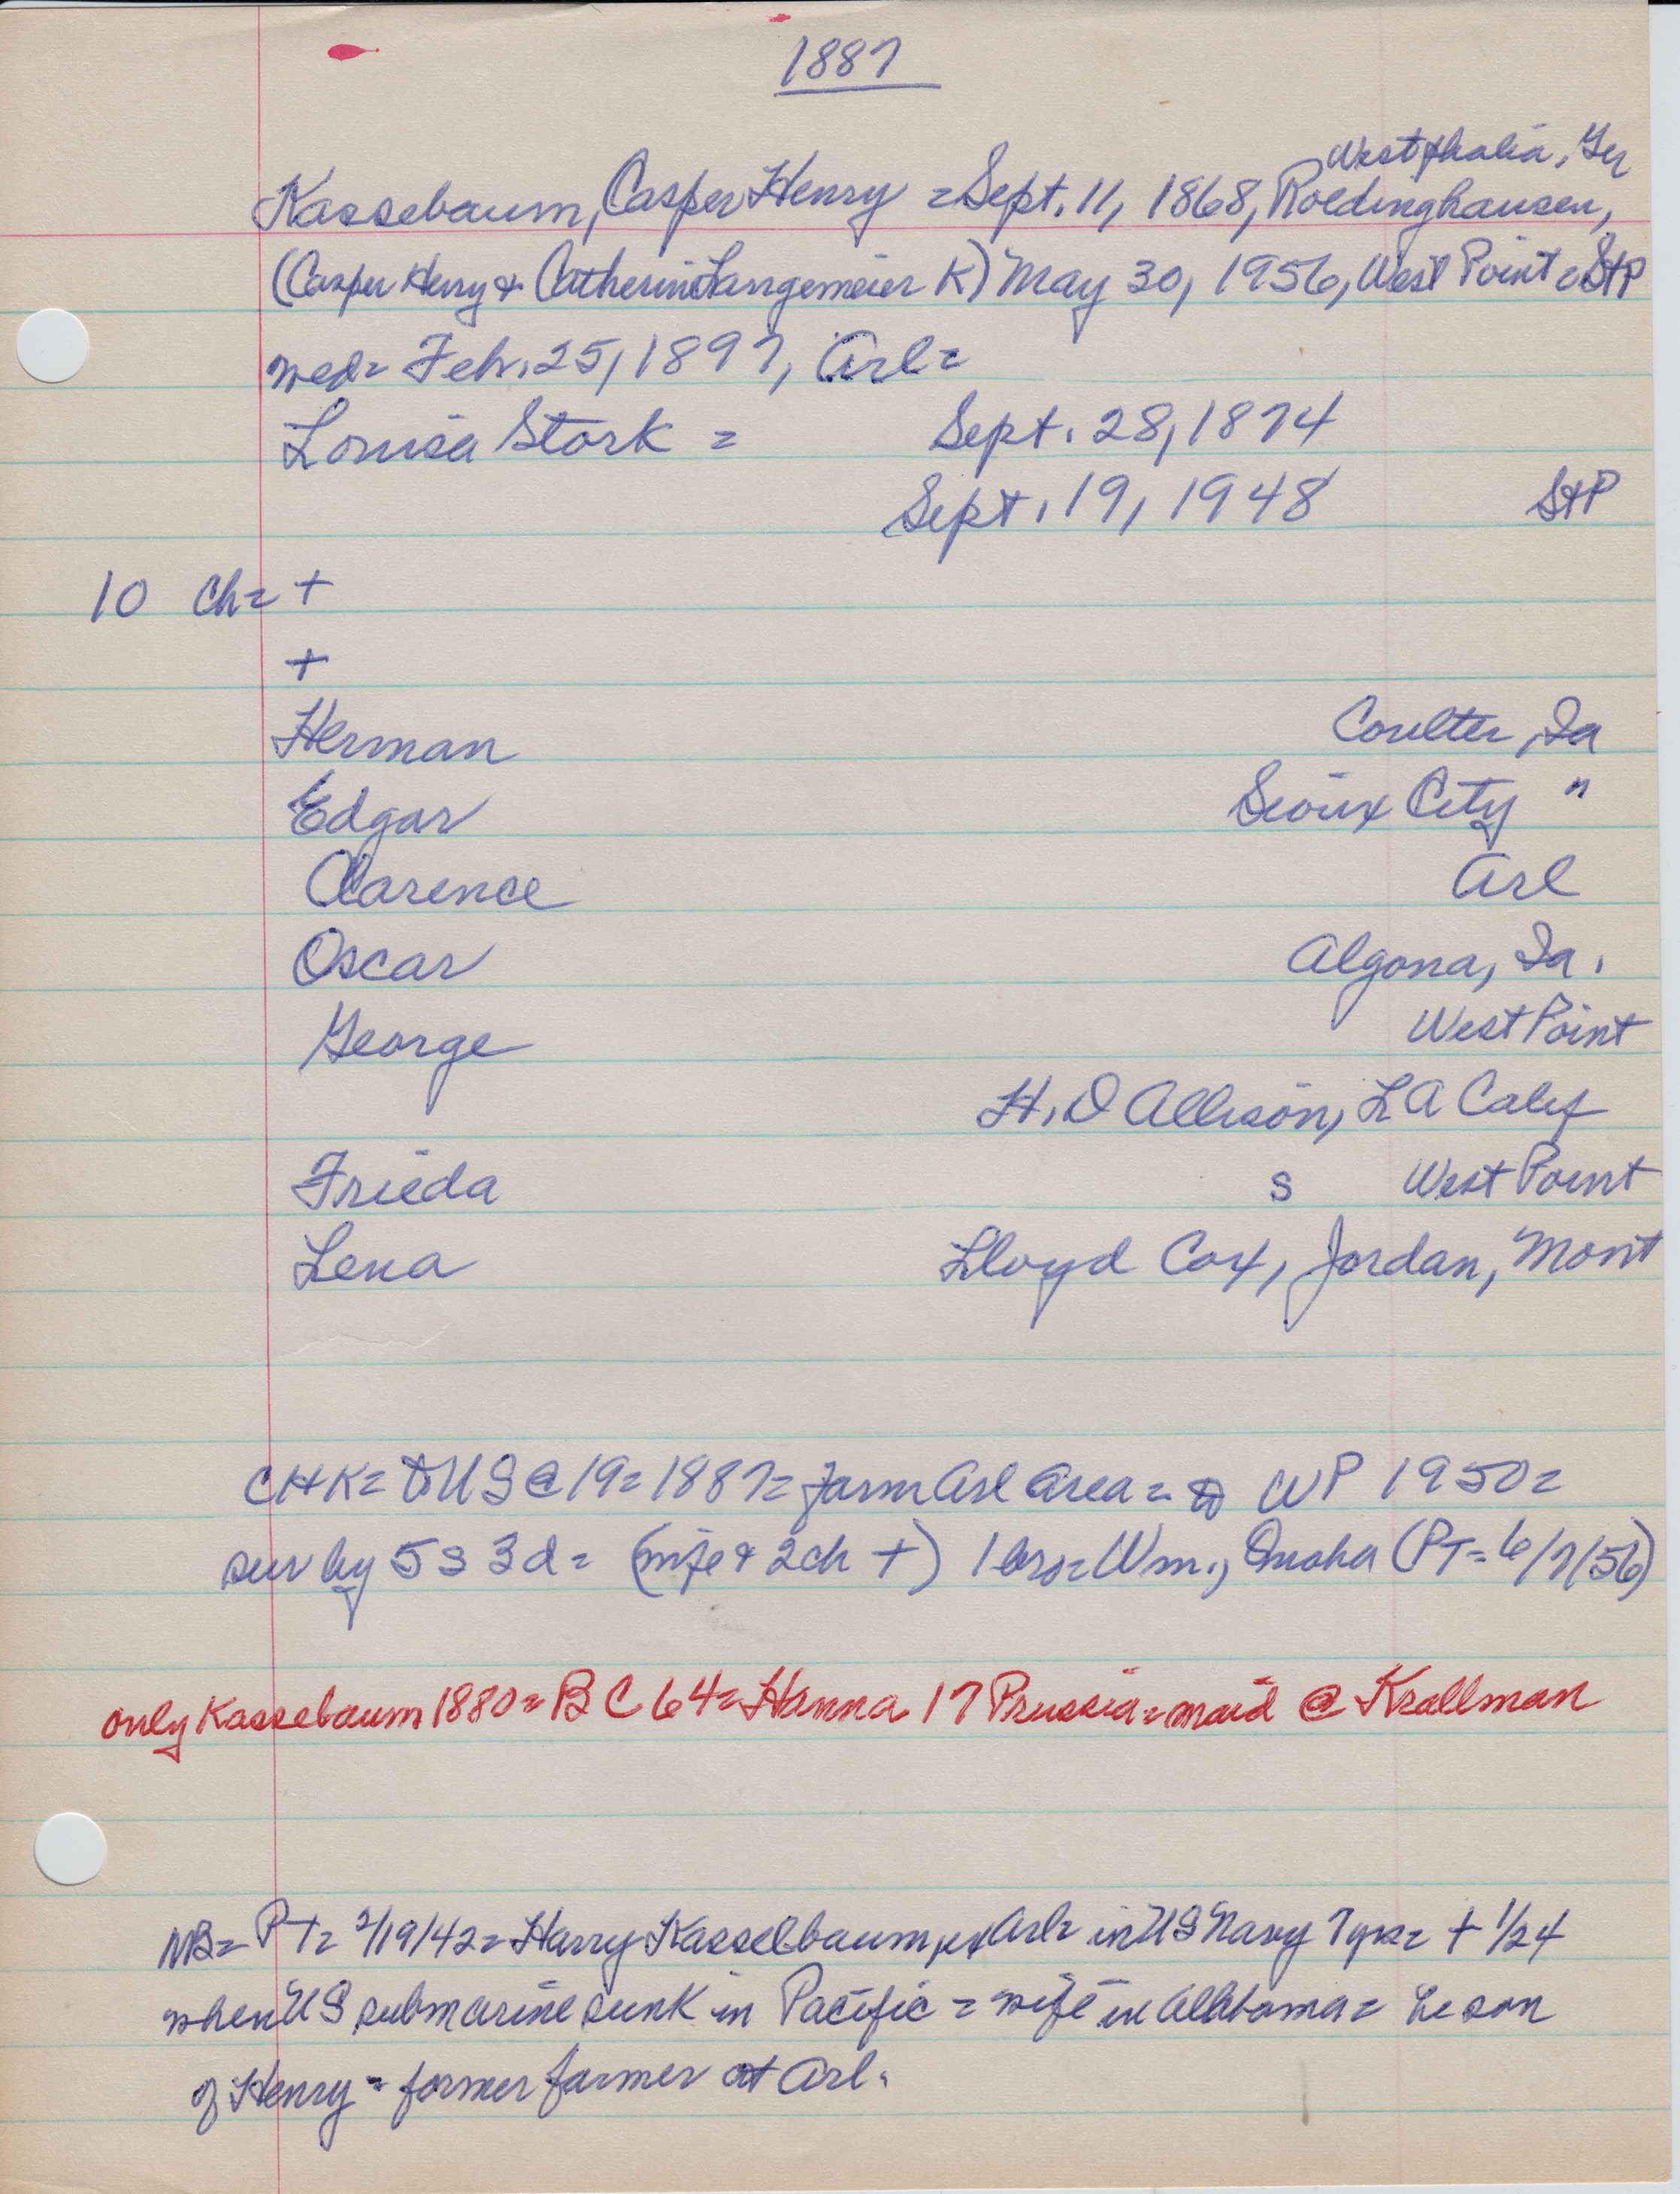 1887
Westphalia, Ger
Kassebaum, Casper Henry = Sept. 11, 1868, Roedinghausen,
(Casper Henry & Catherine Langemeier K) May 30, 1956, West Point = StP
wed = Feb. 25, 1897, Arl =
Louisa Stork = Sept. 28, 1874
Sept. 19, 1948 StP
10 Ch = +
+
Herman Coulter, Ia
Edgar Sioux City "
Clarence Arl
Oscar Algona, Ia.
George West Point
H. D Allison, LA Calif
Frieda S West Point
Lena Lloyd Cox, Jordan, Mont
CHK = to US @ 19 = 1887 = farm Arl area = to WP 1950 =
sur by 5 s 3 d = (wife & 2 ch +) 1 bro = Wm., Omaha (PT = 6/7/56)
only Kassebaum 1880 = BC 64 = Hanna 17 Prussia = maid @ Krallman
NB = PT = 2/19/42 = Harry Kasselbaum, ex Arl = in US Navy 7 yrs = + 1/24
when US submarine sunk in Pacific = wife in Alabama = he son
of Henry = former farmer at Arl.